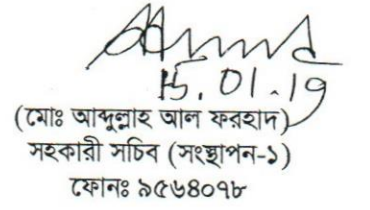 15.01.19
(মোঃ আব্দুল্লাহ আল ফরহাদ)
সহকারী সচিব (সংস্থাপন-১)
ফোনঃ ৯৫৬৪০৭৮